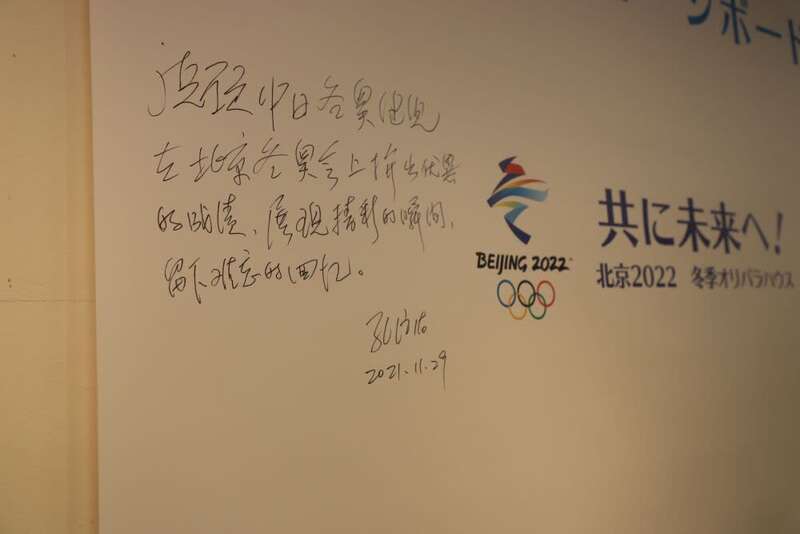 ージボード
祝愿中日冬奥健儿
在北京冬奥会上拼出优异
的成绩、展现精彩的瞬间、
留下难忘的回忆。
孔铉佑
2021.11.29
BEIJING 2022
共に未来へ!
北京2022 冬季オリパラハウス